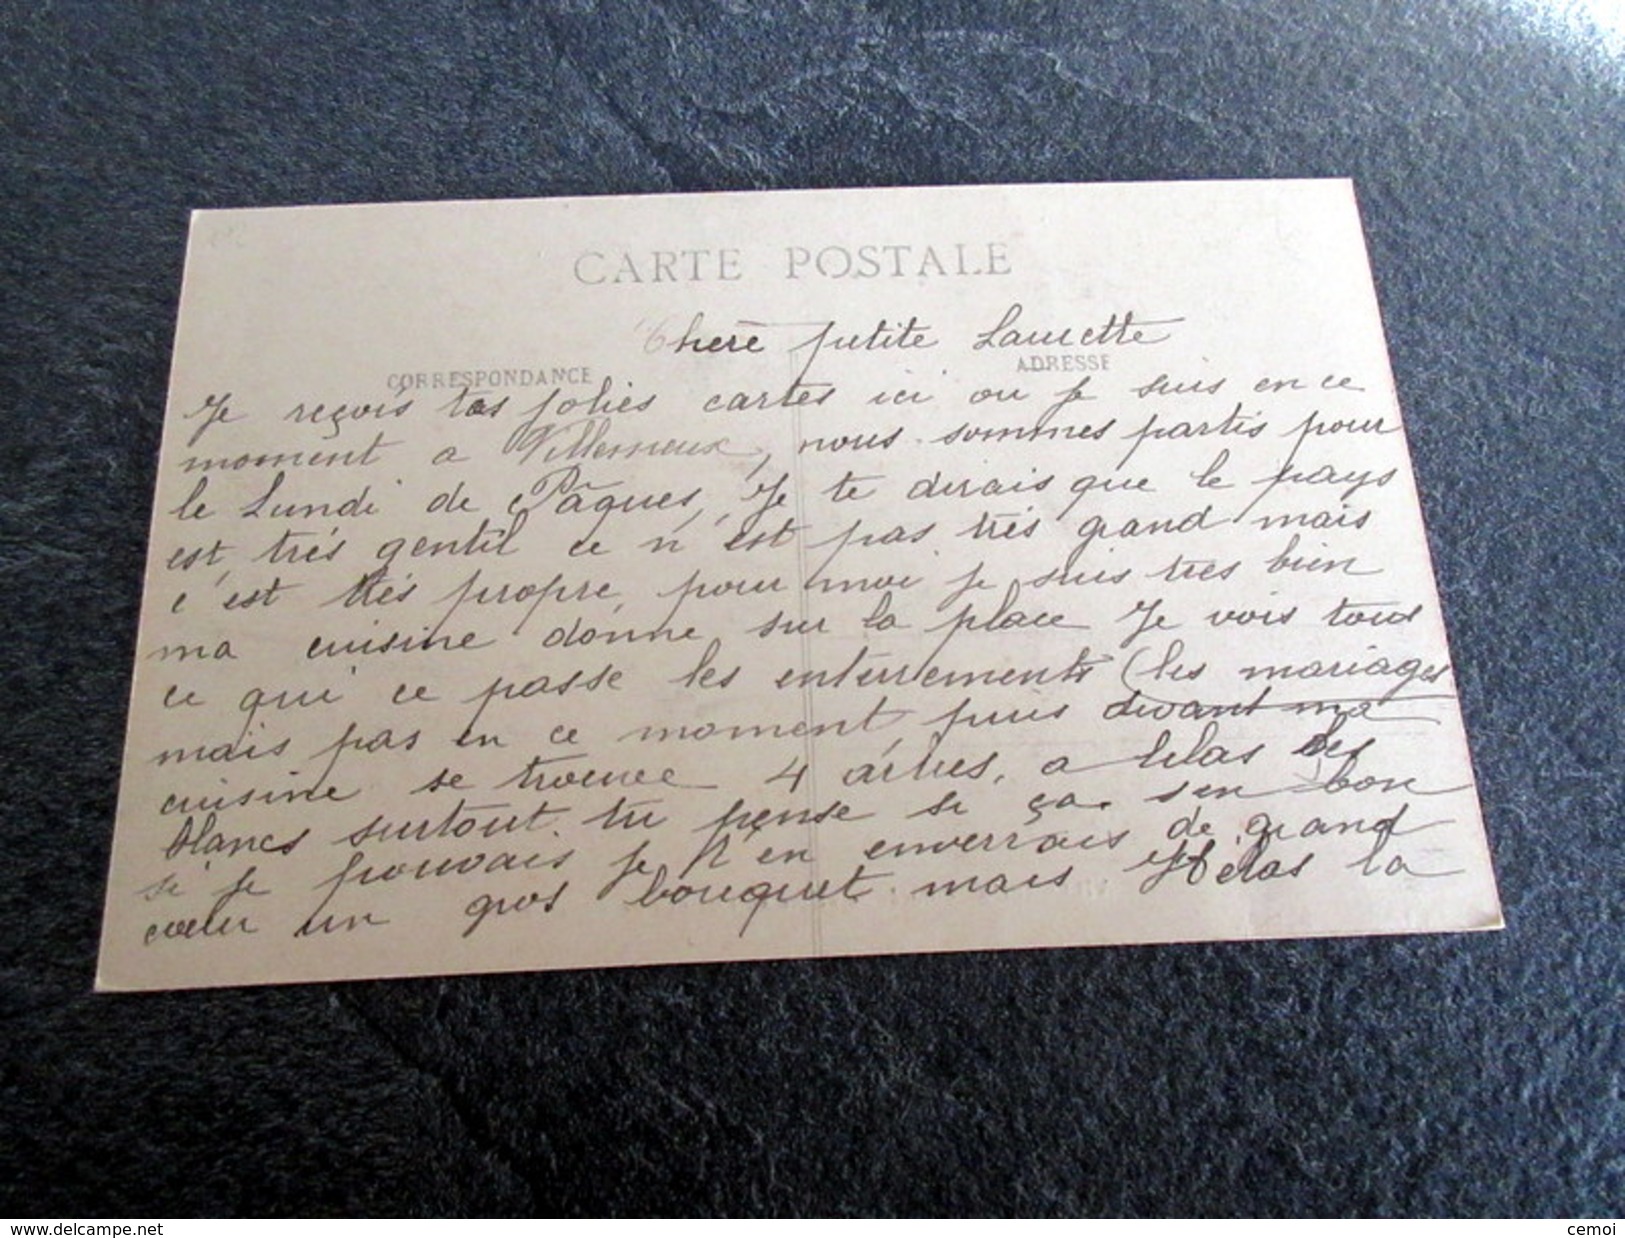 CARTE POSTALE
Chere petite Laurette
CORRESPONDANCE
ADRESSE
Je reçois tes jolies cartes ici ou je suis en ce
moment a Villemeux, nous sommes partis pour
le Lundi de Pâques, Je te dirais que le pays
est très gentil ce n'est pas très grand mais
c'est très propre, pour moi je suis très bien
ma cuisine donne sur la place Je vois tout
ce qui ce passe les enterrements (les mariages
mais pas en ce moment, puis devant ma
cuisine se trouve 4 arbres, a lilas des
blancs surtout. tu pense si ça s'en bon
si je pouvais je t'en enverrais de grand
cœur un gros bouquet mais Hélas la
delcampe.net
cemoi